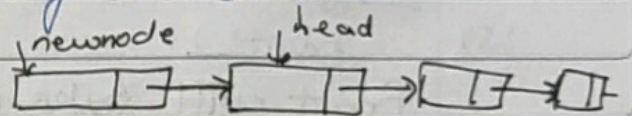 newnode
head